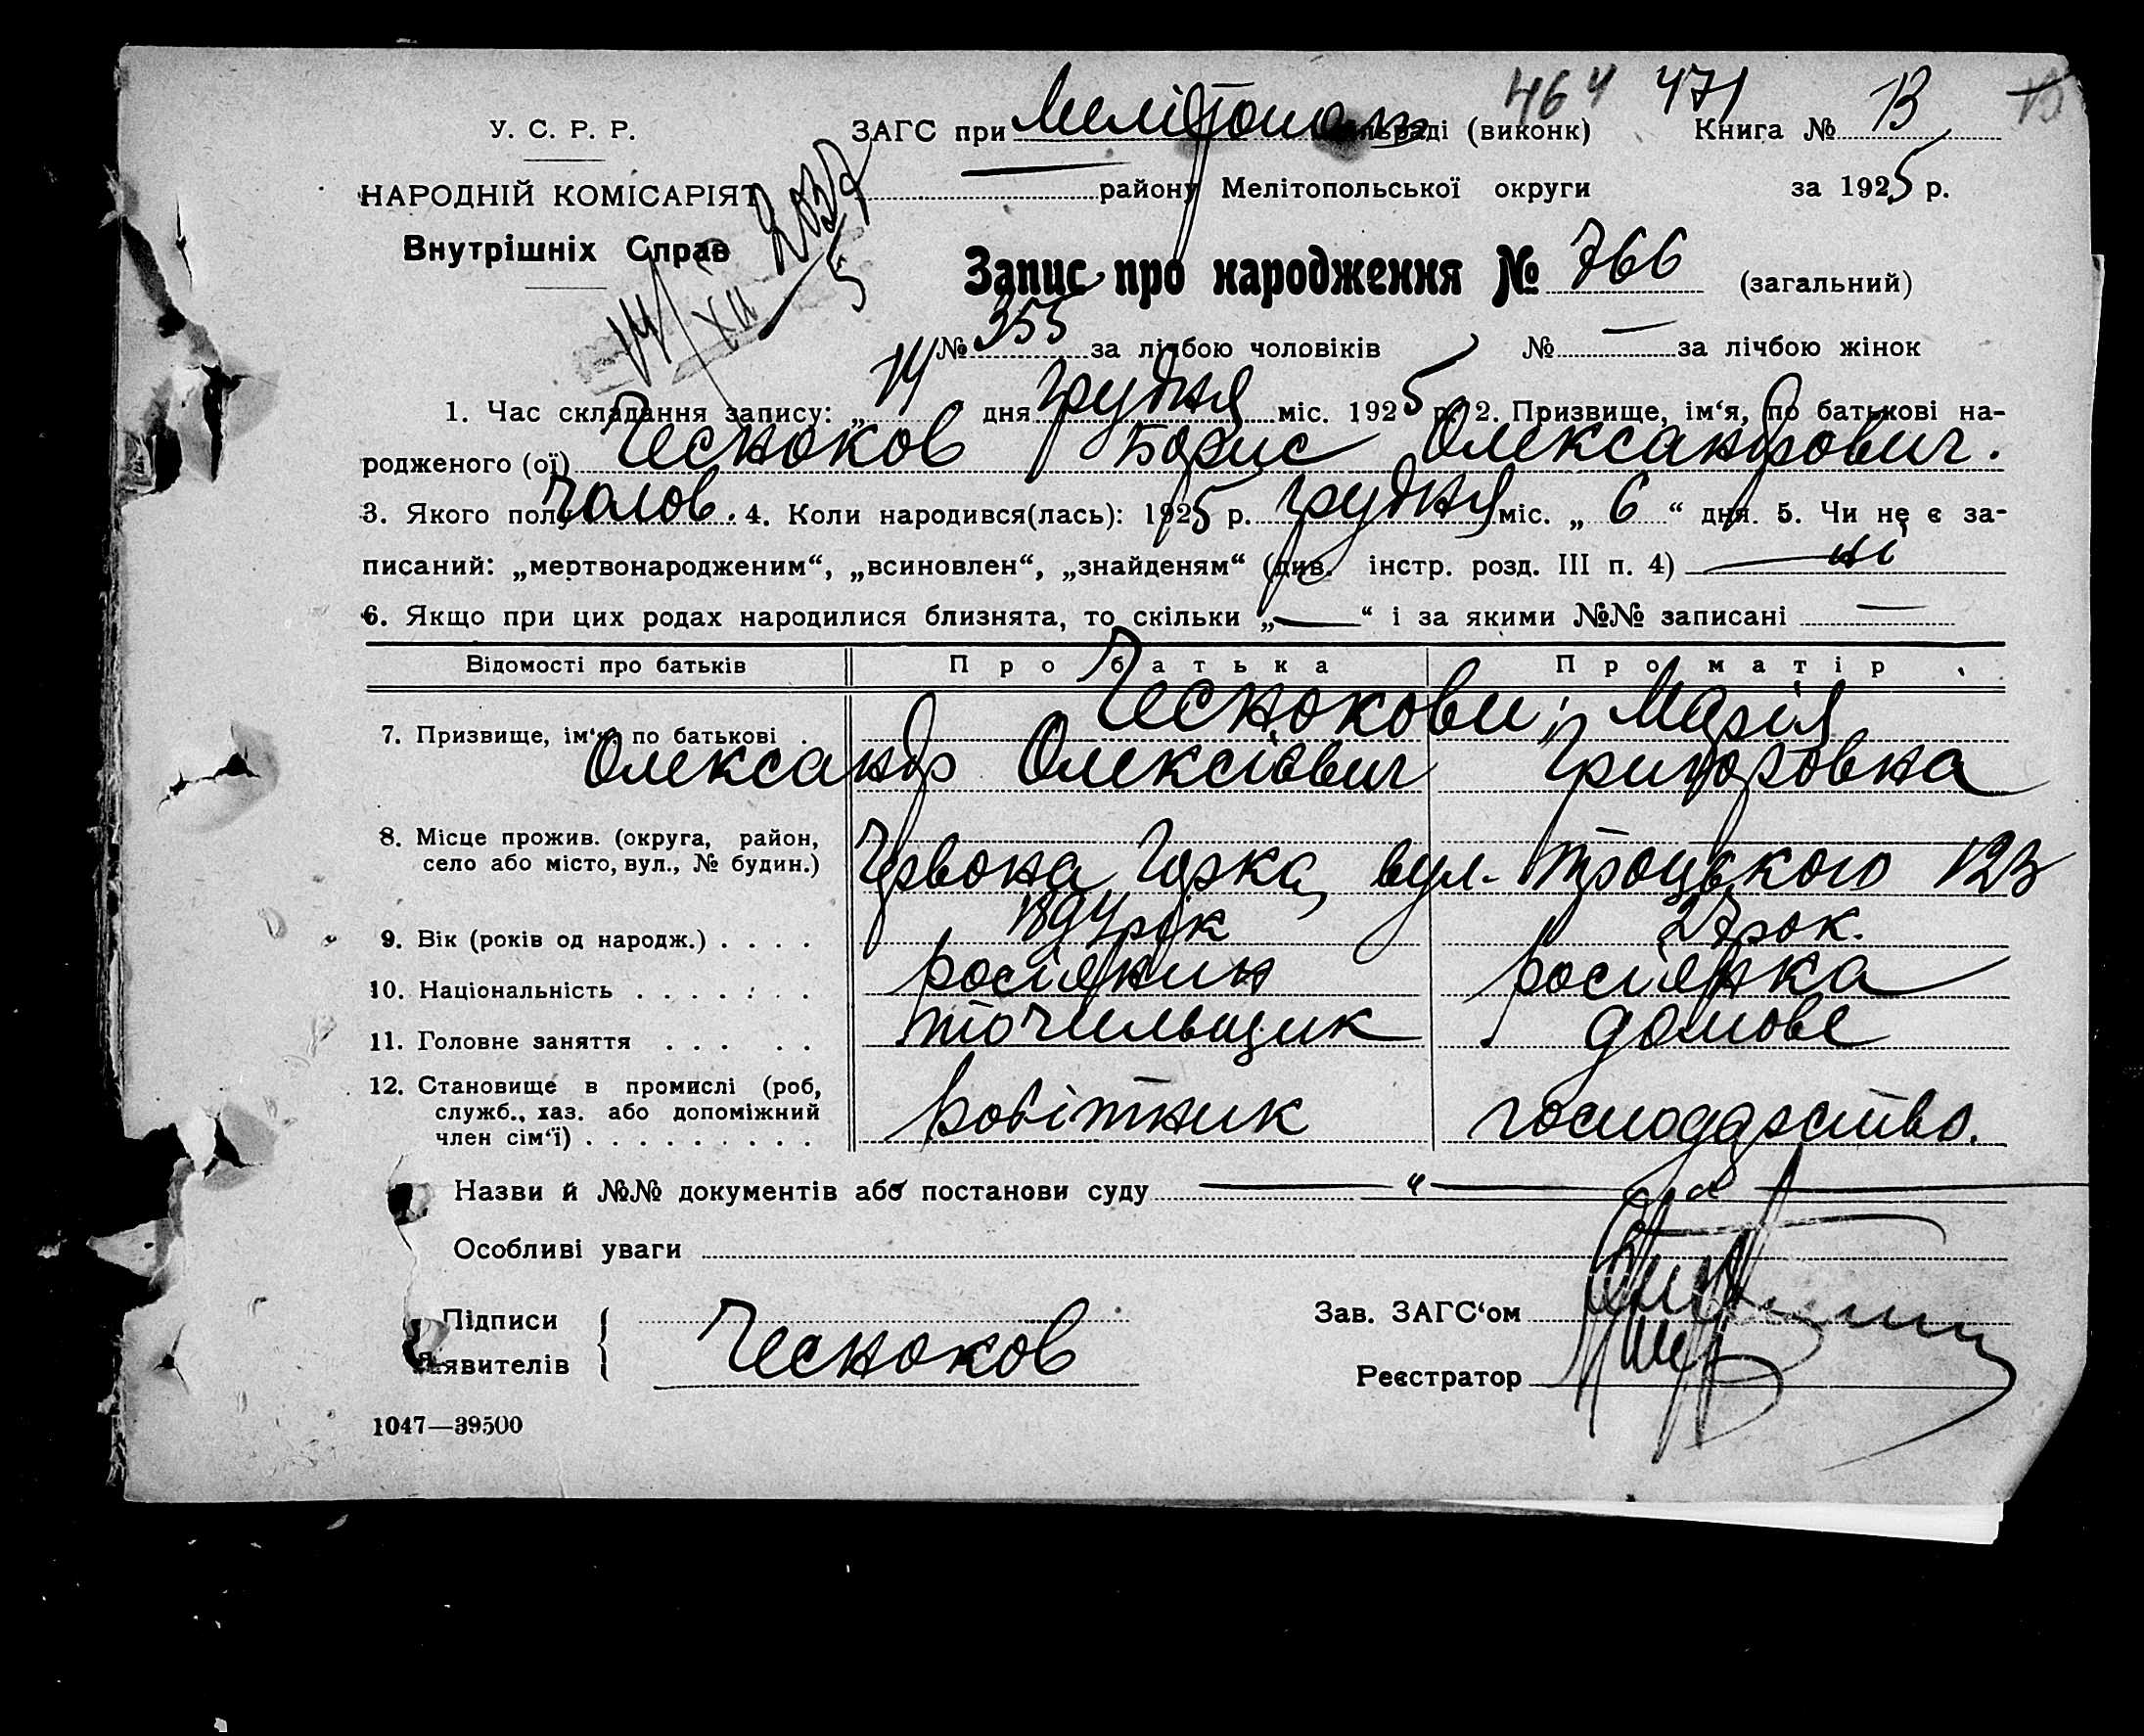 464 471
У. С. Р. Р. ЗАГС при Мелітополь (виконк) Книга № В
НАРОДНІЙ КОМІСАРІЯТ району Мелітопольської округи за 1925 р.
Внутрішніх Справ
14/XII 5
Запис про народження № 766 (загальний)
№ 355 за лічбою чоловіків № — за лічбою жінок
1. Час складання запису: „ 14 " дня грудня міс. 1925 р. 2. Призвище, ім‘я, по батькові на-
родженого (ої) Чесноков Борис Олександрович.
3. Якого полу чолов. 4. Коли народився(лась): 1925 р. грудня міс. „ 6 “ дня. 5. Чи не є за-
писаний: „мертвонародженим“, „всиновлен“, „знайденям“ (див. інстр. розд. III п. 4) ні
6. Якщо при цих родах народилися близнята, то скільки „—“ і за якими №№ записані —
Відомості про батьків Про батька Про матір
7. Призвище, ім‘я, по батькові . Чеснокови; Марія
Олександр Олексієвич Григоровна
8. Місце прожив. (округа, район,
село або місто, вул., № будин.) Червона Гірка, вул. Троцького 123
9. Вік (років од народж.) . . . . рік 27 рок.
10. Національність . . . . . . . росіянин росіянка
11. Головне заняття . . . . . точильщик домове
12. Становище в промислі (роб,
служб., хаз. або допоміжний
член сім‘ї) . . . . . . . . . робітник господарство.
Назви й №№ документів або постанови суду — " —
Особливі уваги
Підписи Зав. ЗАГС‘ом
заявителів Чесноков
Реєстратор
1047—39500